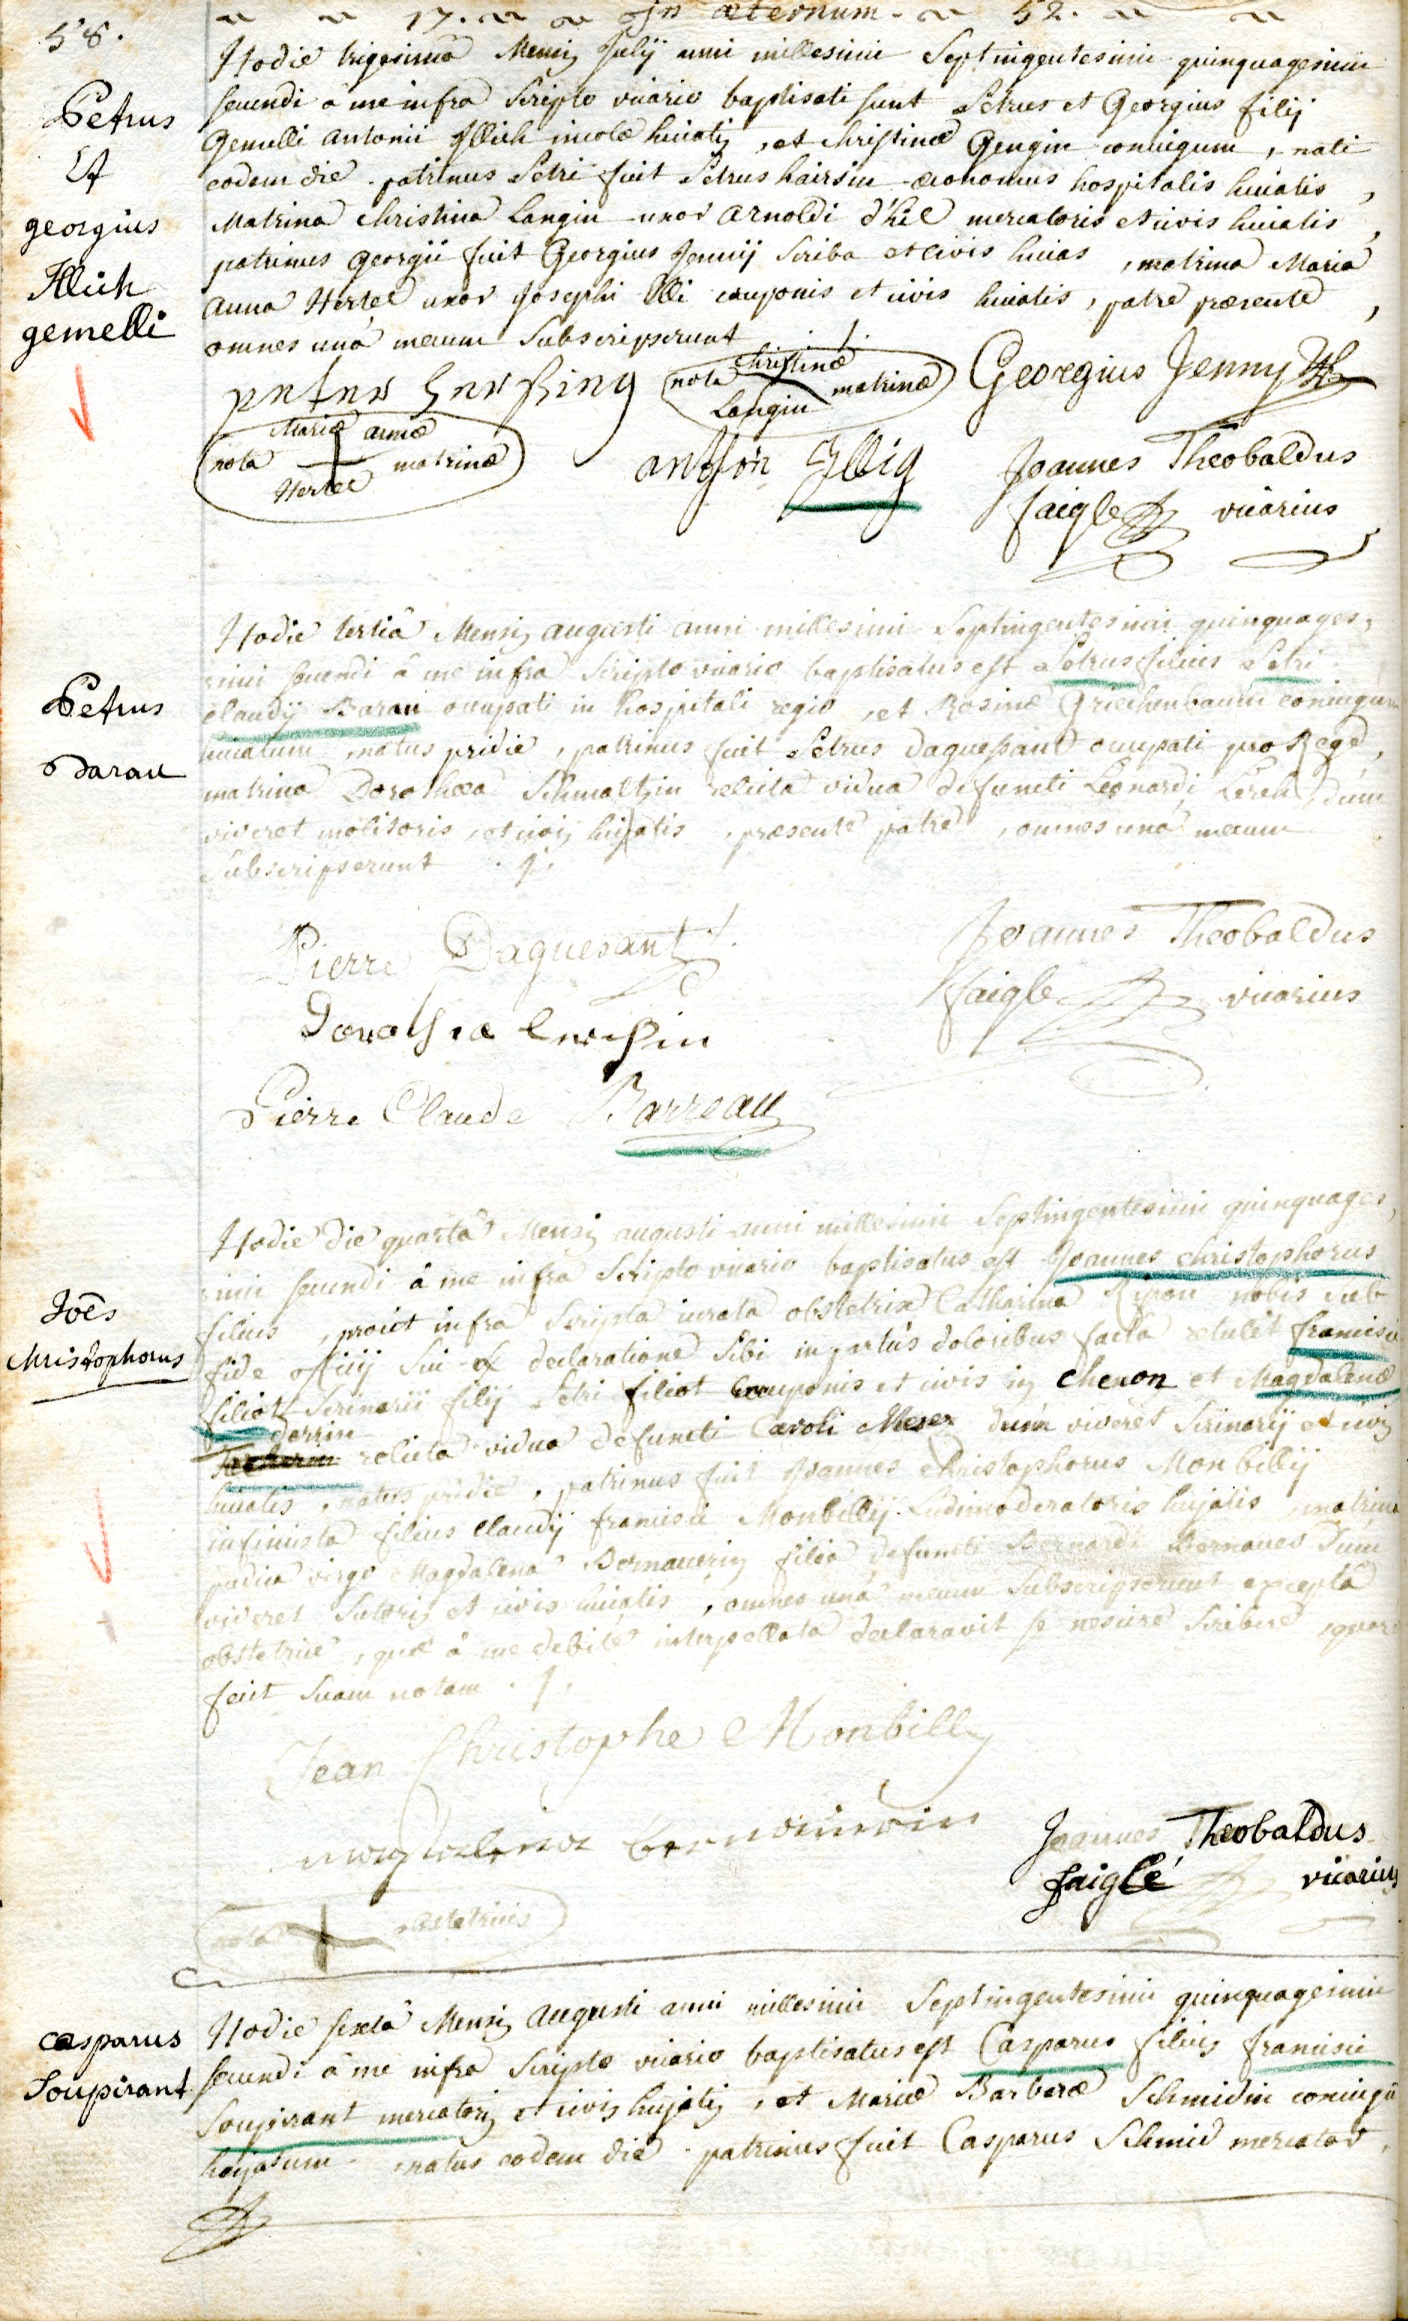 58.
17. In æternum. 52.
Petrus
Et
georgius
Illich
gemelli
Hodie trigesimâ Mensis Julij anni millesimi Septingentesimi quinquagesimi
secundi â me infra Scripto vicario baptisati sunt Petrus et Georgius filij
Gemelli Antonii Illich incolæ huiatis, et Christinæ Gengin coniugum, nati
eodem die. patrinus Petri fuit Petrus hairsin œconomus hospitalis huiatis,
Matrina Christina Langin uxor Arnoldi d'hil mercatoris et civis huiatis,
patrinus Georgii fuit Georgius Jennij Scriba et civis huias, matrina Maria
Anna Hertel uxor Josephi Illi cauponis et civis huiatis, patre præsente,
omnes unâ mecum Subscripserunt ./.
nota Christinæ Langin matrinæ
Georgius Jenny
nota Mariæ annæ Hertel matrinæ
anthon Illig
Joannes Theobaldus
faigle vicarius
Petrus
Barau
Hodie tertiâ Mensis augusti anni millesimi Septingentesimi quinquages,
simi secundi â me infra Scripto vicario baptisatus est Petrus filius Petri
claudij Barau occupati in hospitali regio, et Rosinæ Griechenbaum coniugum
huiatum, natus pridie, patrinus fuit Petrus Daguessant occupati pro Rege,
matrina Dorothæa Schmaltzin relicta vidua defuncti Leonardi Lerch, dum
viveret molitoris, et civis hujatis, præsente patre, omnes unâ mecum
Subscripserunt ./.
Pierre Daguesant
Joannes Theobaldus
faigle vicarius
Dorothea Lerchin
Pierre Claude Barreau
Joês
Christophorus
Hodie die quartâ Mensis augusti anni millesimi Septingentesimi quinquages,
simi secundi â me infra Scripto vicario baptisatus est Joannes Christophorus
filius, prout infra Scripta iurata obstetrix Catharina Ripou nobis sub
fide officij Sui ex declaratione Sibi in partûs doloribus facta retulit francisci
filiot Scrinarii filij Petri filiot cauponis et civis in Cheron et Magdalenæ
derrin
relicta vidua defuncti Caroli Meser dum viveret Scrinarij et civis
huiatis, natus pridie, patrinus fuit Joannes Christophorus Monbillij
infimista filius Claudij francisci Monbillij Ludimoderatoris hujatis, matrina
pudica virgo Magdalena Bernauerin filia defuncti Bernardi Bernauer dum
viveret Sutoris et civis huiatis, omnes unâ mecum Subscripserunt exceptâ
obstetrice, quæ â me debite interpellata declaravit se nescire Scribere, quare
fecit Suam notam ./.
Jean Christophe Monbilly
magdalena bernauerin
Joannes Theobaldus
faiglé vicarius
nota obstetricis
Casparus
Soupirant
Hodie sextâ Mensis Augusti anni millesimi Septingentesimi quinquagesimi
secundi â me infra Scripto vicario baptisatus est Casparus filius francisci
Soupirant mercatoris et civis hujatis, et Mariæ Barbaræ Schmidin coniugū
hujatum, natus eodem die. patrinus fuit Casparus Schmid mercator,